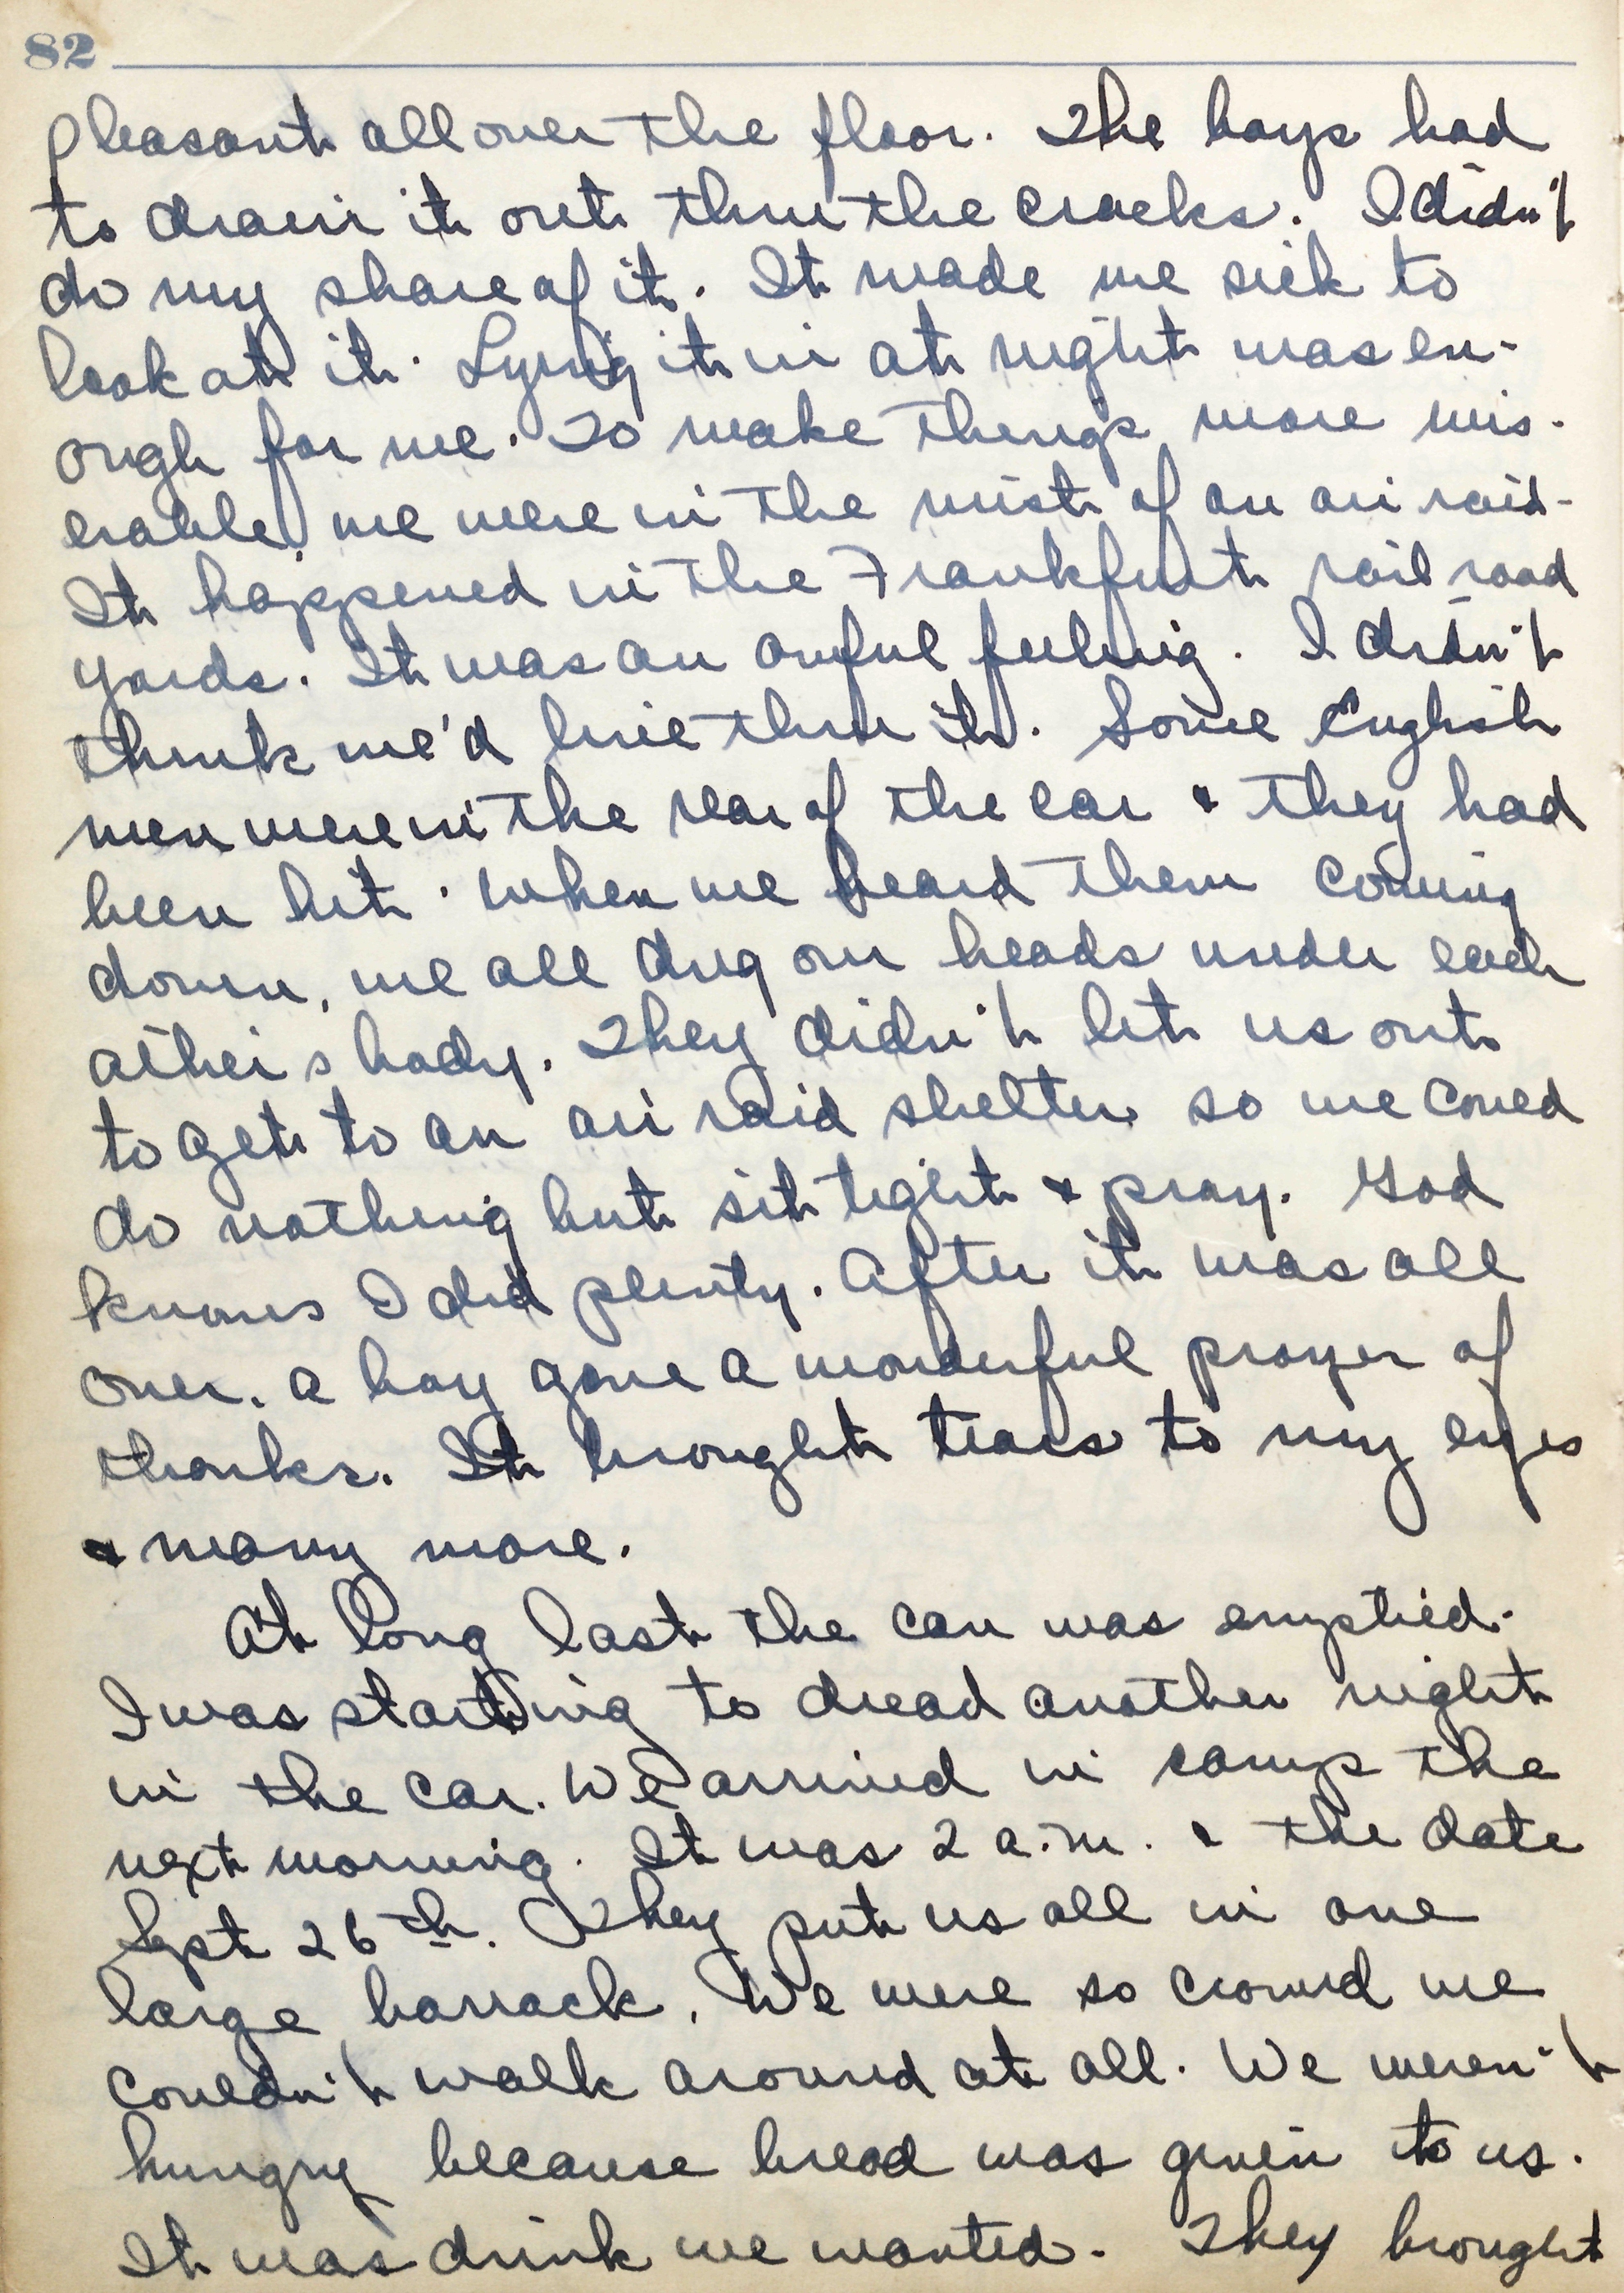 82
pleasant all over the floor. The boys had
to drain it out thru the cracks. I didn't
do my share of it. It made me sick to
look at it. Lying it in at night was en-
ough for me. To make things more mis-
erable, we were in the mist of an air raid.
It happened in the Frankfurt rail road
yards. It was an awful feeling. I didn't
think we'd live thru it. Some English
men were in the rear of the car & they had
been hit. When we heard them coming
down, we all dug our heads under each
other's body. They didn't let us out
to get to an air raid shelter so we could
do nothing but sit tight & pray. God
knows I did plenty. After it was all
over, a boy gave a wonderful prayer of
thanks. It brought tears to my eyes
& many more.
At long last the can was emptied.
I was starting to dread another night
in the car. We arrived in camp the
next morning. It was 2 a.m. & the date
Sept 26th. They put us all in one
large barrack. We were so crowd we
couldn't walk around at all. We weren't
hungry because bread was given to us.
It was drink we wanted. They brought